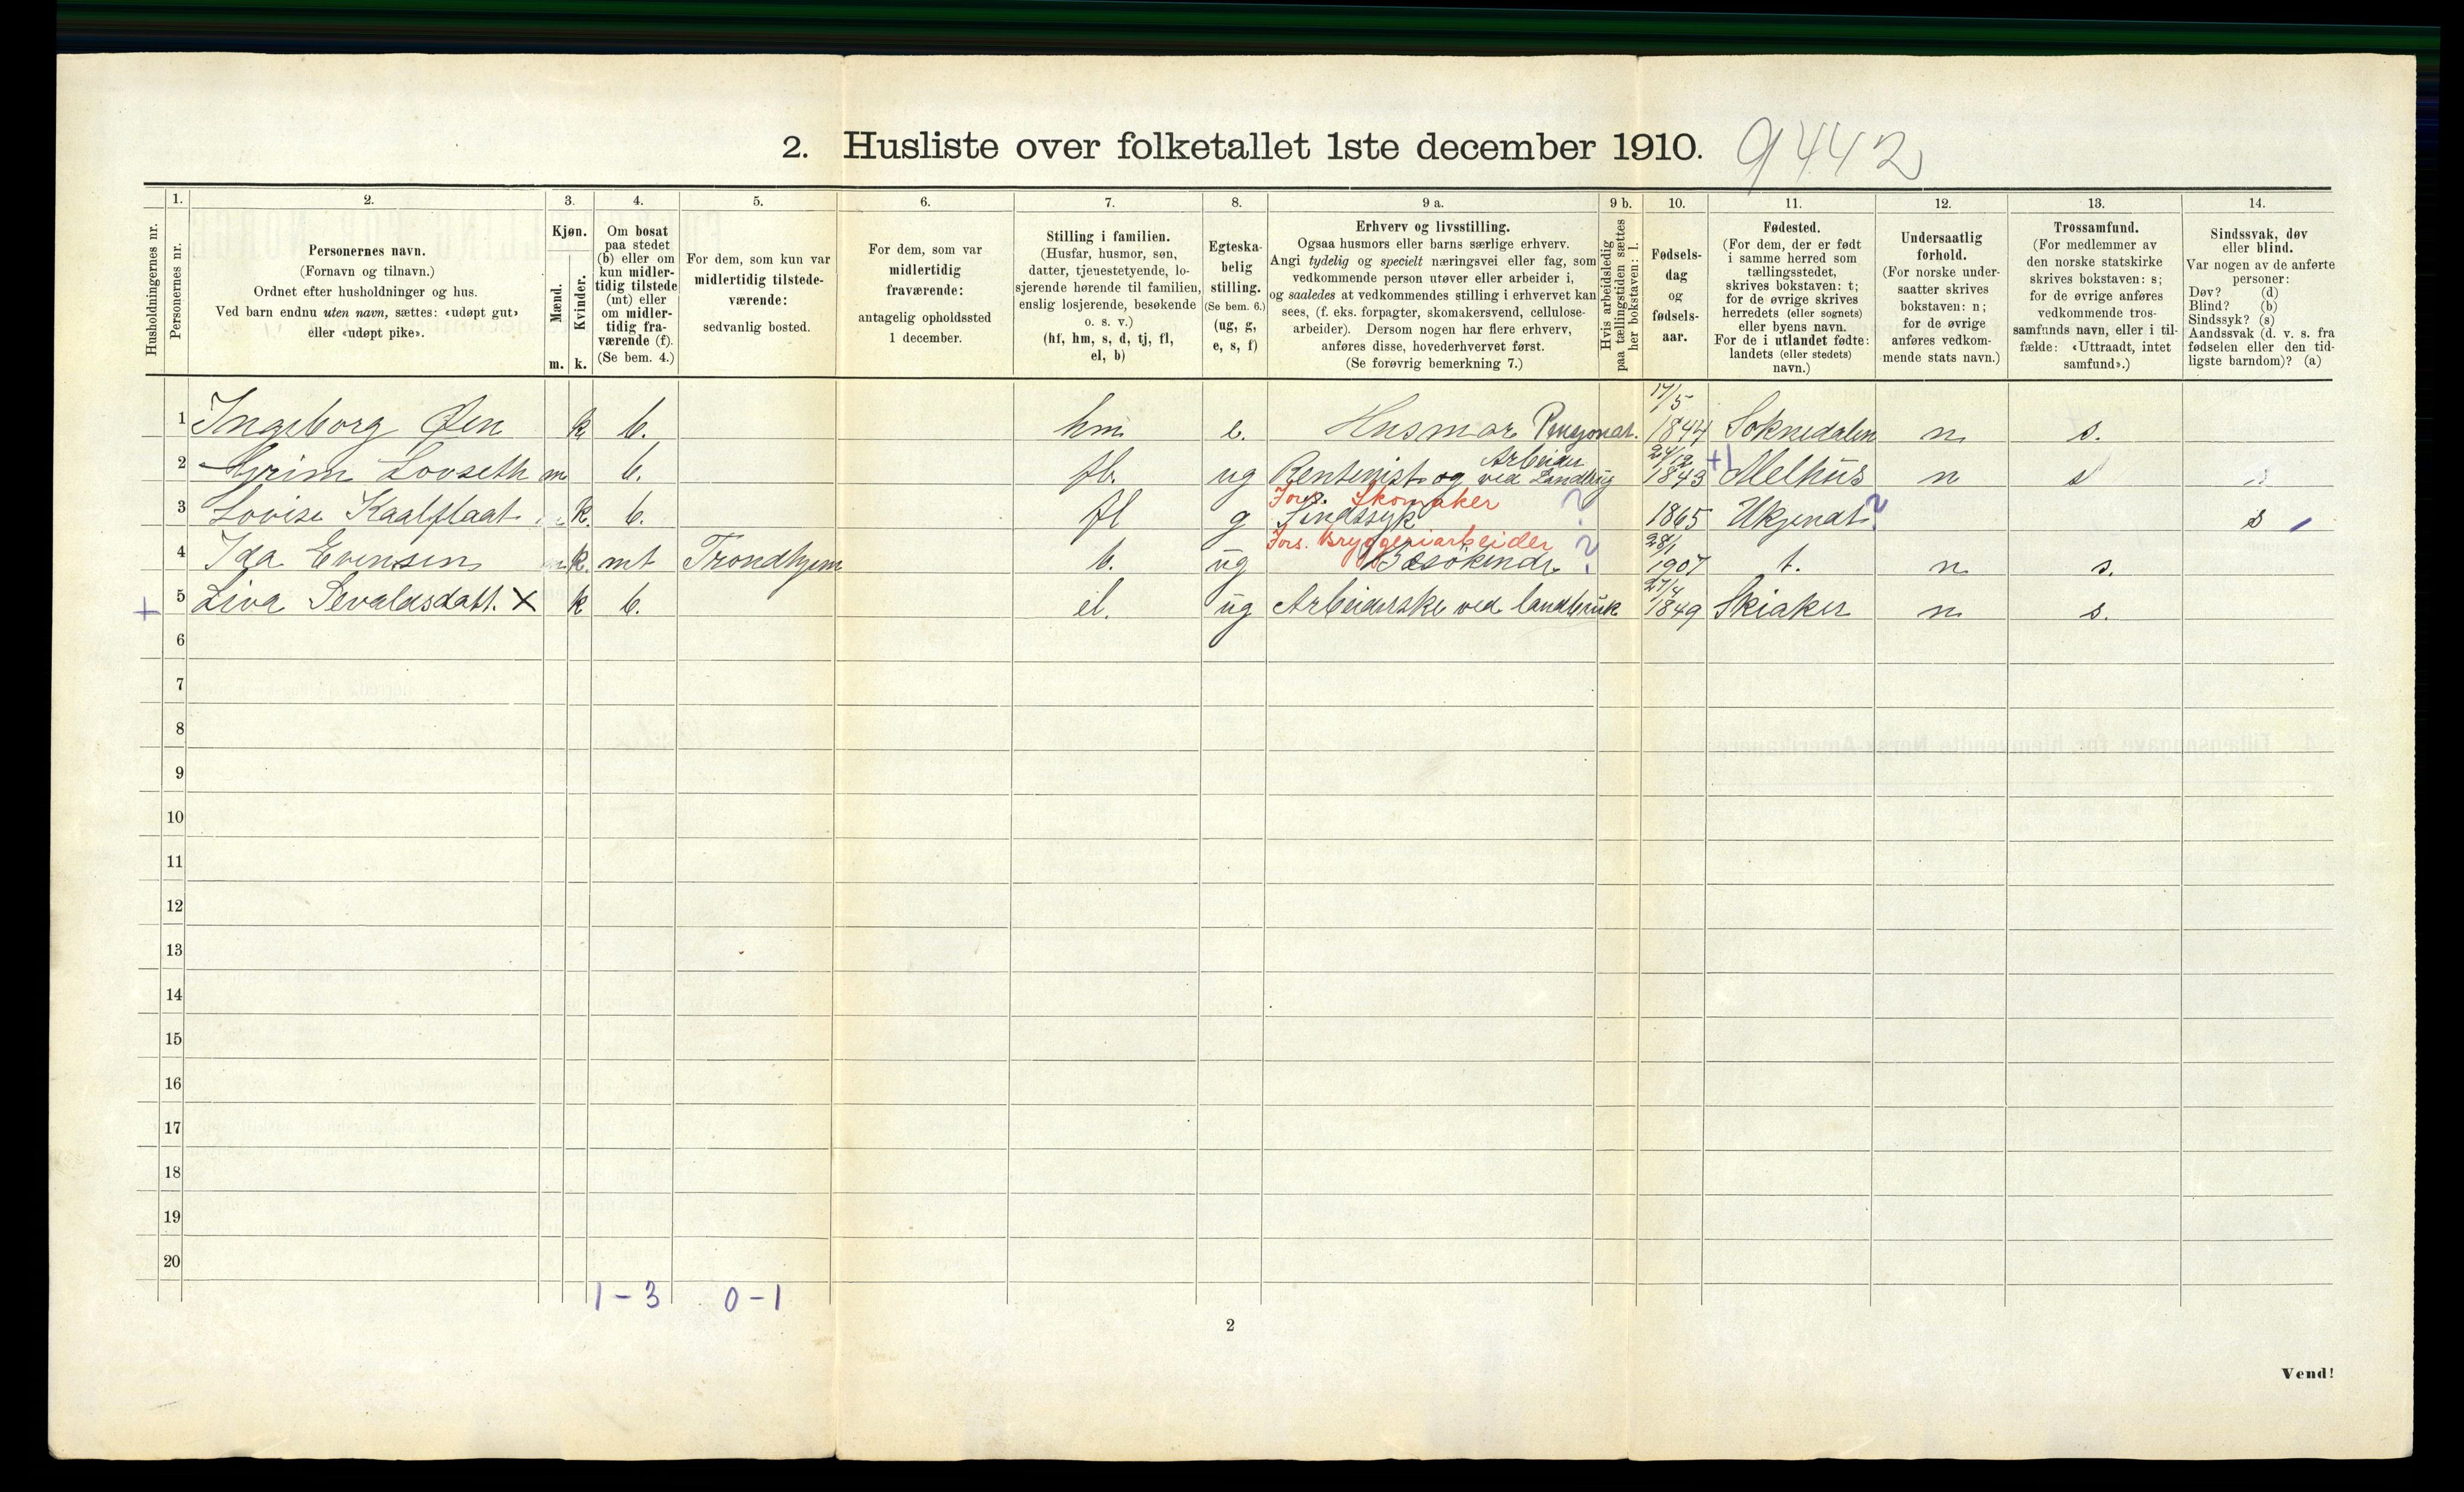 2. Husliste over folketallet 1ste december 1910. 9442
1. 2. 3. 4. 5. 6. 7. 8. 9 a. 9 b. 10. 11. 12. 13. 14.
Husholdningernes nr.
Personernes nr.
Personernes navn.
(Fornavn og tilnavn.)
Ordnet efter husholdninger og hus.
Ved barn endnu uten navn, sættes: «udøpt gut»
eller «udøpt pike».
Kjøn.
Mænd.
Kvinder.
m. k.
Om bosat
paa stedet
(b) eller om
kun midler-
tidig tilstede
(mt) eller
om midler-
tidig fra-
værende (f).
(Se bem. 4.)
For dem, som kun var
midlertidig tilstede-
værende:
sedvanlig bosted.
For dem, som var
midlertidig
fraværende:
antagelig opholdssted
1 december.
Stilling i familien.
(Husfar, husmor, søn,
datter, tjenestetyende, lo-
sjerende hørende til familien,
enslig losjerende, besøkende
o. s. v.)
(hf, hm, s, d, tj, fl,
el, b)
Egteska-
belig
stilling.
(Se bem. 6.)
(ug, g,
e, s, f)
Erhverv og livsstilling.
Ogsaa husmors eller barns særlige erhverv.
Angi tydelig og specielt næringsvei eller fag, som
vedkommende person utøver eller arbeider i,
og saaledes at vedkommendes stilling i erhvervet kan
sees, (f. eks. forpagter, skomakersvend, cellulose-
arbeider). Dersom nogen har flere erhverv,
anføres disse, hovederhvervet først.
(Se forøvrig bemerkning 7.)
Hvis arbeidsledig
paa tællingstiden sættes
her bokstaven: l.
Fødsels-
dag
og
fødsels-
aar.
Fødested.
(For dem, der er født
i samme herred som
tællingsstedet,
skrives bokstaven: t;
for de øvrige skrives
herredets (eller sognets)
eller byens navn.
For de i utlandet fødte:
landets (eller stedets)
navn.)
Undersaatlig
forhold.
(For norske under-
saatter skrives
bokstaven: n;
for de øvrige
anføres vedkom-
mende stats navn.)
Trossamfund.
(For medlemmer av
den norske statskirke
skrives bokstaven: s;
for de øvrige anføres
vedkommende tros-
samfunds navn, eller i til-
fælde: «Uttraadt, intet
samfund».)
Sindssvak, døv
eller blind.
Var nogen av de anførte
personer:
Døv? (d)
Blind? (b)
Sindssyk? (s)
Aandssvak (d. v. s. fra
fødselen eller den tid-
ligste barndom)? (a)
1 Ingeborg Øen k b. hm e. Husmor Pensjonat. 17/5 1844 Soknedalen n s.
2 Grim Lovseth m b. fl. ug Rentenist og Arbeider ved Landbrug 24/12 1843 +1 Melhus n s
Fors. Skomaker ?
3 Lovise Kaalflaat k. b. fl g Sindssyk 1865 Ukjendt ? s
Fors. Bryggeriarbeider ?
4 Ida Evensen k. mt Trondhjem b. ug Besökende 28/1 1907 t. n s.
+ 5 Liva Sevaldsdatt. X k b. el. ug Arbeiderske ved landbruk 27/4 1849 Skiaker n s.
6
7
8
9
10
11
12
13
14
15
16
17
18
19
20
1 - 3 0 - 1
2
Vend!